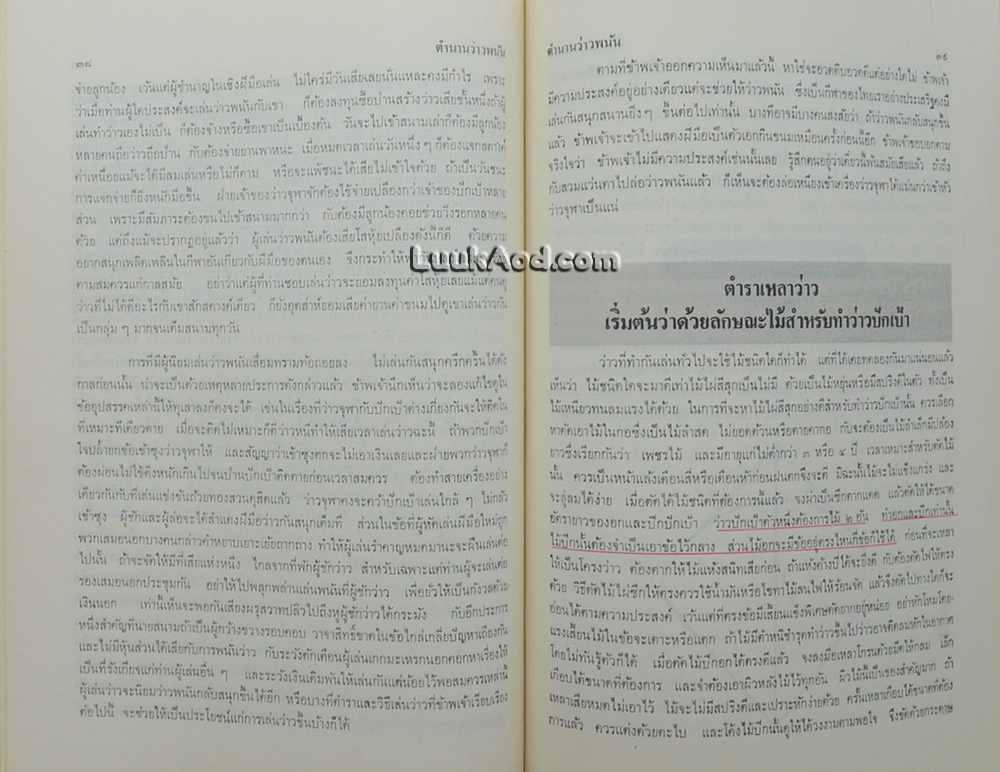 ๓๘
ตำนานว่าวพนัน
จ่ายลูกน้อง เว้นแต่ผู้ชำนาญในเชิงฝีมือเล่น ไม่ใคร่มีวันเสียเลยนั่นแหละคงมีกำไร เพราะ
ว่าเมื่อท่านผู้ใดประสงค์จะเล่นว่าวพนันกับเขา ก็ต้องลงทุนซื้อป่านสร้างว่าวเสียชั้นหนึ่งถ้าผู้
เล่นทำว่าวเองไม่เป็น ก็ต้องจ้างหรือซื้อเขาเป็นเบื้องต้น วันจะไปเข้าสนามเล่าก็ต้องมีลูกน้อง
หลายคนถือว่าวถือป่าน กับต้องจ่ายยานพาหนะ เมื่อหมดเวลาเล่นวันหนึ่ง ๆ ก็ต้องแจกสตางค์
ค่าเหนื่อยแม้จะได้มีลมเล่นหรือไม่ก็ตาม หรือจะแพ้ชนะได้เสียไม่เข้าใจด้วย ถ้าเป็นวันชนะ
การแจกจ่ายก็ยิ่งหนักมือขึ้น ฝ่ายเจ้าของว่าวจุฬาจักต้องใช้จ่ายเปลืองกว่าเจ้าของปักเป้าหลาย
ส่วน เพราะมีสัมภาระต้องขนไปเข้าสนามมากกว่า กับต้องมีลูกน้องคอยช่วยวิ่งรอกหลายคน
ด้วย แต่ถึงแม้จะปรากฏอยู่แล้วว่า ผู้เล่นว่าวพนันต้องเสียโสหุ้ยเปลืองดังนี้ก็ดี ด้วยความ
อยากสนุกเพลิดเพลินในกีฬาอันเกี่ยวกับฝีมือของตนเอง จึงกระทำให้
ตามสมควรแก่กาลสมัย อย่าว่าแต่ผู้ที่ท่านชอบเล่นว่าวจะยอมลงทุนค่าโสหุ้ยเลยแม้แต่คนดู
ว่าวที่ไม่ได้ดีอะไรกับเขาสักสตางค์เดียว ก็ยังอุตส่าห์ยอมเสียค่ายานค่าขนมไปดูเขาเล่นว่าวกัน
เป็นกลุ่ม ๆ มากจนเต็มสนามทุกวัน
การที่มีผู้นิยมเล่นว่าวพนันเสื่อมทรามท้อถอยลง ไม่เล่นกันสนุกครึกครื้นได้ดัง
กาลก่อนนั้น น่าจะเป็นด้วยเหตุหลายประการดังกล่าวแล้ว ข้าพเจ้านึกเห็นว่าจะลองแก้ไขดูใน
ข้ออุปสรรคเหล่านี้ให้ทุเลาลงก็คงจะได้ เช่นในเรื่องที่ว่าวจุฬากับปักเป้าต่างเกี่ยงกันจะให้ติดใน
ที่เหมาะที่เดียวดาย เมื่อจะติดไม่เหมาะก็ดีว่าวหนีทำให้เสียเวลาเล่นว่าวฉะนี้ ถ้าพวกปักเป้า
ใจปล้ำยกข้อเข้าซุงว่าวจุฬาให้ และสัญญาว่าเข้าซุงตกจะไม่เอาเงินเลยและฝ่ายพวกว่าวจุฬาก็
ต้องผ่อนไม่ใช้ดึงหนักเกินไปจนป่านปักเป้าติดตายก่อนเวลาสมควร ต้องทำสายเครื่องอย่าง
เดียวกันกับที่เล่นแข่งขันถ้วยทองสวนดุสิตแล้ว ว่าวจุฬาคงจะคว้าปักเป้าเล่นใกล้ ๆ ไม่กลัว
เข้าซุง ผู้ชักและผู้ล่อจะได้สำแดงฝีมือว่าวกันสนุกเต็มที่ ส่วนในข้อที่ผู้หัดเล่นฝีมือใหม่ถูก
พวกเสมอนอกบางคนกล่าวคำหยาบเยาะเย้ยถากถาง ทำให้ผู้เล่นรำคาญหมดมานะจะฝืนเล่นต่อ
ไปนั้น ถ้าจะจัดให้มีที่เสียแห่งหนึ่ง ไกลจากที่พักผู้ชักว่าว สำหรับเฉพาะแต่ท่านผู้จะเล่นต่อ
รองเสมอนอกประชุมกัน อย่าให้ไปพลุกพล่านเล่นแผ่นที่ผู้ชักว่าว เพื่อยั่วให้เป็นกังวลด้วย
เงินนอก เท่านี้เห็นจะพอกันเสียงผรุสวาทปลิวไปถึงหูผู้ชักว่าวได้กระมัง กับอีกประการ
หนึ่งสำคัญที่นายสนามถ้าเป็นผู้กว้างขวางรอบคอบ วาจาสิทธิ์ขาดในข้อไกล่เกลี่ยปัญหาเถียงกัน
และไม่มีหุ้นส่วนได้เสียกับการพนันว่าว กับระวังตักเตือนผู้เล่นเกกมะเหรกนอกคอกหาเรื่องให้
เป็นที่รังเกียจแก่ท่านผู้เล่นอื่น ๆ และระวังเงินเดิมพันให้เล่นกันแต่น้อยไว้พอสมควรเหล่านี้
ผู้เล่นว่าวจะนิยมว่าวพนันกลับสนุกขึ้นได้อีก หรือบางทีตำราและวิธีเล่นว่าวที่ข้าพเจ้าเรียบเรียง
ต่อไปนี้ จะช่วยให้เป็นประโยชน์แก่การเล่นว่าวขึ้นบ้างก็ได้
ตำนานว่าวพนัน
๓๙
ตามที่ข้าพเจ้าออกความเห็นมาแล้วนี้ หาใช่จะอวดดิบอวดดีแต่อย่างใดไม่ ข้าพเจ้า
มีความประสงค์อยู่อย่างเดียวแต่จะช่วยให้ว่าวพนัน ซึ่งเป็นกีฬาของไทยเราอย่างประเสริฐคงมี
เล่นกันสนุกสนานยิ่ง ๆ ขึ้นต่อไปเท่านั้น บางทีอาจมีบางคนสงสัยว่า ถ้าว่าวพนันกลับสนุกขึ้น
แล้ว ข้าพเจ้าจะเข้าไปแสดงฝีมือเป็นตัวเอกกินขนมเหมือนครั้งก่อนนี้อีก ข้าพเจ้าขอบอกตาม
จริงใจว่า ข้าพเจ้าไม่มีความประสงค์เช่นนั้นเลย รู้สึกตนอยู่ว่าเดี๋ยวนี้พ้นสมัยเสียแล้ว ถ้าถึง
กับสวมแว่นตาไปล่อว่าวพนันแล้ว ก็เห็นจะต้องล่อเหนี่ยงเข้าเครื่องว่าวจุฬาได้แม่นกว่าเข้าหัว
ว่าวจุฬาเป็นแน่
LuukAod.com
ตำราเหลาว่าว
เริ่มต้นว่าด้วยลักษณะไม้สำหรับทำว่าวปักเป้า
ว่าวที่ทำกันเล่นทั่วไปจะใช้ไม้ชนิดใดก็ทำได้ แต่ที่ได้เคยทดลองกันมาแน่นอนแล้ว
เห็นว่า ไม้ชนิดใดจะมาดีเท่าไม้ไผ่สีสุกเป็นไม่มี ด้วยเป็นไม้หยุ่นหรือมีสปริงดีในตัว ทั้งเป็น
ไม้เหนียวทนลมแรงได้ด้วย ในการที่จะหาไม้ไผ่สีสุกอย่างดีสำหรับทำว่าวปักเป้านั้น ควรเลือก
หาตัดเอาไม้ในกอซึ่งเป็นไม้ลำสด ไม่ยอดด้วนหรือตายคากอ กับจะต้องเป็นไม้ลำเล็กมีปล้อง
ยาวซึ่งเรียกกันว่า เพชรไม้ และมีอายุแก่ไม่ต่ำกว่า ๓ หรือ ๔ ปี เวลาเหมาะสำหรับตัดไม้
นั้น ควรเป็นหน้าแล้งเดือนสี่หรือเดือนห้าก่อนฝนตกจึงจะดี มิฉะนั้นไม้จะไม่แข็งแกร่ง และ
จะลู่ลมได้ง่าย เมื่อตัดได้ไม้ชนิดที่ต้องการนี้แล้ว จงผ่าเป็นซีกตากแดด แล้วตัดให้ได้ขนาด
อัตรายาวของอกและปีกปักเป้า ว่าวปักเป้าตัวหนึ่งต้องการไม้ ๒ อัน ทำอกและปีกเท่านั้น
ไม้ปีกนั้นต้องจำเป็นเอาข้อไว้กลาง ส่วนไม้อกจะมีข้ออยู่ตรงไหนกี่ข้อก็ใช้ได้ ก่อนที่จะเหลา
ให้เป็นโครงว่าว ต้องตากให้ไม้แห้งสนิทเสียก่อน ถ้าแห้งค้างปีได้จะยิ่งดี กับต้องดัดไฟให้ตรง
ด้วย วิธีดัดไม้ไผ่ซีกให้ตรงควรใช้น้ำมันหรือไขทาไม้ลนไฟให้ร้อนจัด แล้วจึงดัดไปทางใดก็จะ
อ่อนได้ตามความประสงค์ เว้นแต่ที่ตรงข้อมีเสี้ยนแข็งพิเศษดัดยากอยู่หน่อย อย่าหักโหมโดย-
แรงเสี้ยนไม้ในข้อจะเดาะหรือแตก ถ้าไม้มีตำหนิชำรุดทำว่าวขึ้นไปว่าวอาจติดลมหักในอากาศ
โดยไม่ทันรู้ตัวก็ได้ เมื่อดัดไม้ปีกอกได้ตรงดีแล้ว จงลงมือเหลาโกรนด้วยมีดให้กลม เล็ก
เกือบได้ขนาดที่ต้องการ และจำต้องเอาผิวหลังไม้ไว้ทุกอัน ผิวไม้นี้เป็นของสำคัญมาก ถ้า
เหลาเสียหมดไม่เอาไว้ ไม้จะไม่มีสปริงดีและเปราะหักง่ายด้วย ครั้นเหลาเกือบได้ขนาดที่ต้อง
การแล้ว ควรแต่งด้วยตะไบ และโค้งไม้ปีกนั้นดูให้ได้วงงามตามพอใจ จึงขัดด้วยกระดาษ